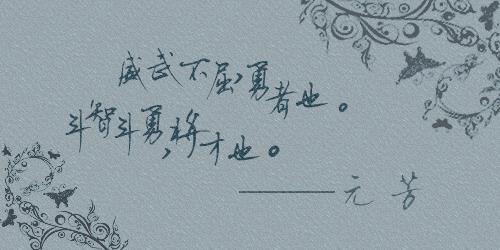 威武不屈,勇者也。
斗智斗勇,将才也。
——元芳